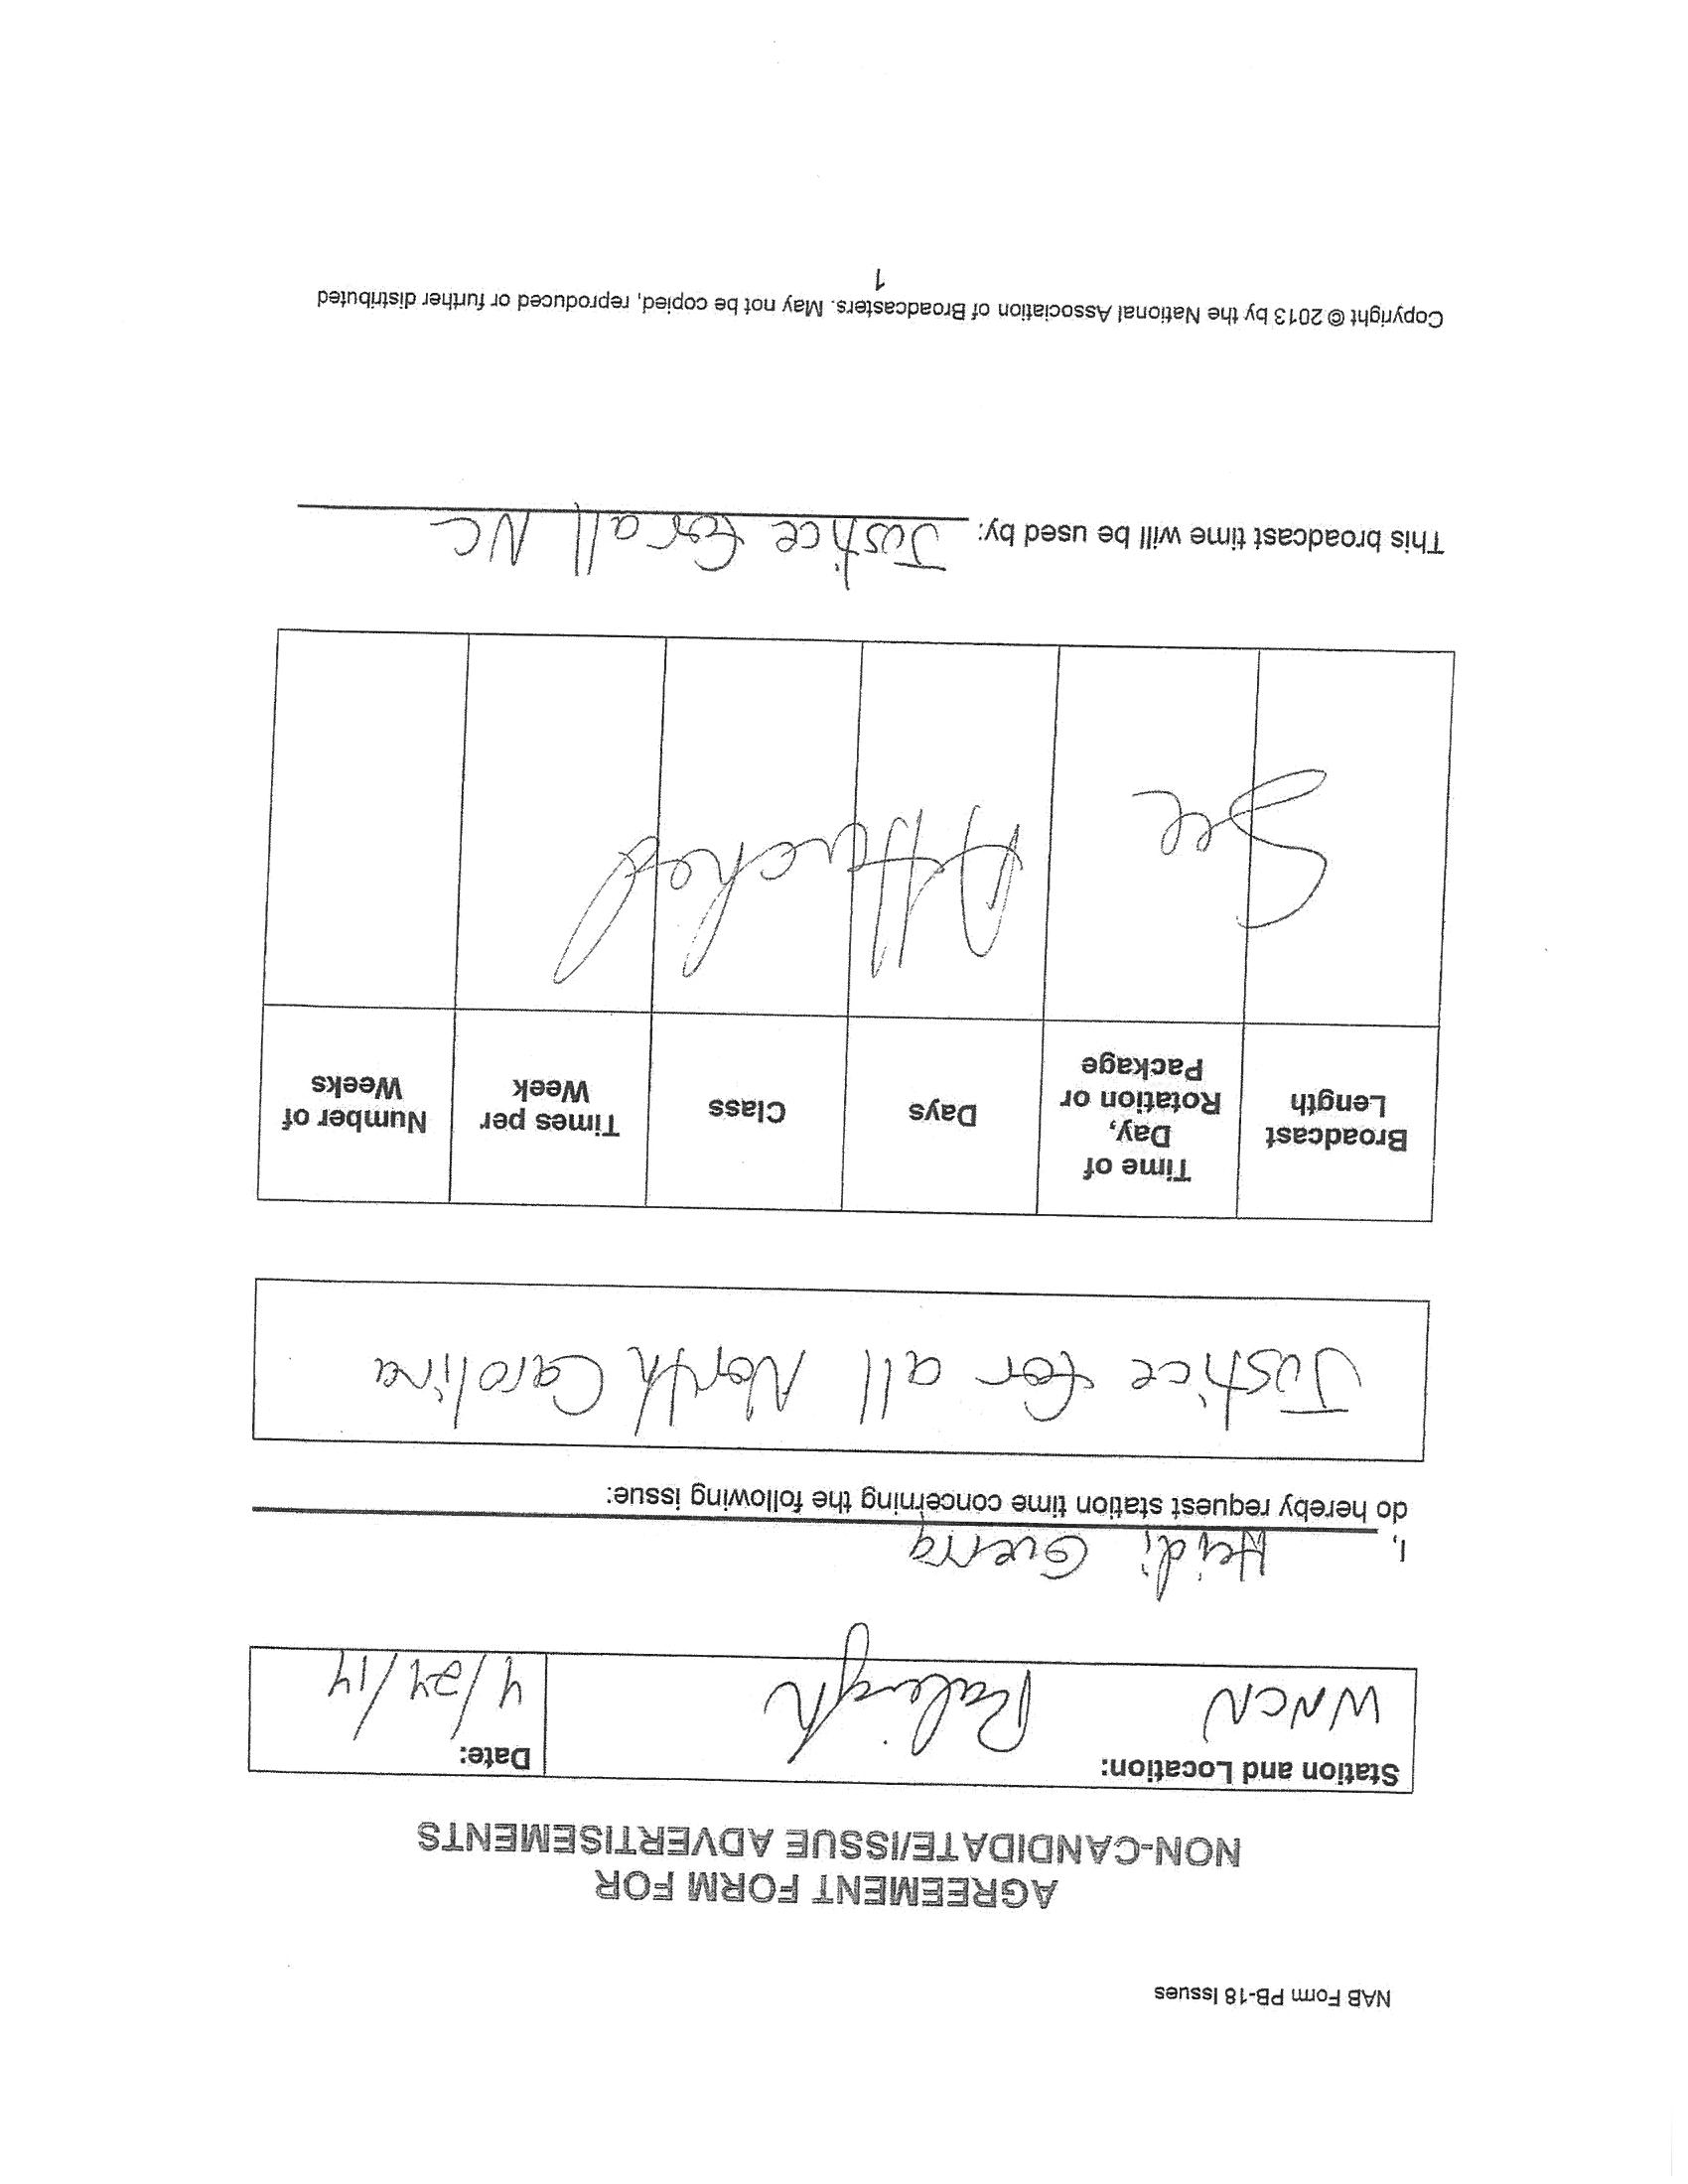 NAB Form PB-18 Issues
AGREEMENT FORM FOR
NON-CANDIDATE/ISSUE ADVERTISEMENTS
Station and Location: Date:
WNCN Raleigh 4/24/14
I, Heidi Guerra
do hereby request station time concerning the following issue:
Justice for all North Carolina
Broadcast Length
Time of Day, Rotation or Package
Days
Class
Times per Week
Number of Weeks
See Attached
This broadcast time will be used by: Justice for all NC
Copyright © 2013 by the National Association of Broadcasters. May not be copied, reproduced or further distributed
1